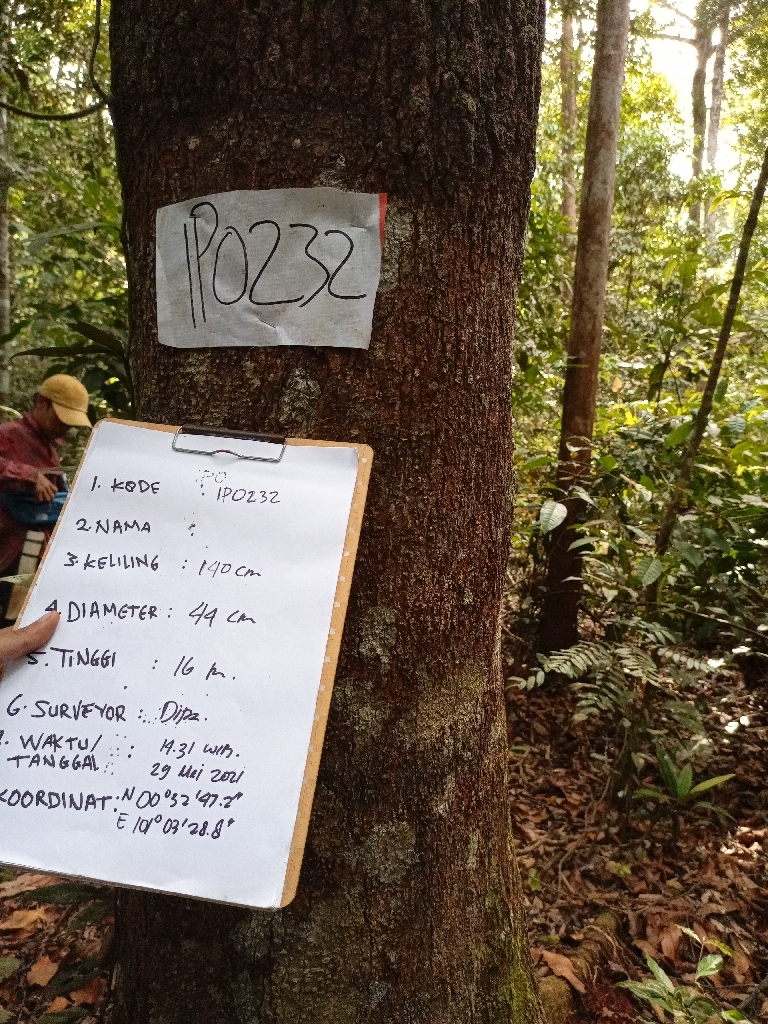 IPO232
1. KODE : IPO232
2. NAMA :
3. KELILING : 140 cm
4. DIAMETER : 44 cm
5. TINGGI : 16 m.
6. SURVEYOR : Dipa.
7. WAKTU/ : 14.31 WIB.
TANGGAL 29 Mei 2021
KOORDINAT : N 00°32'47.2"
E 101°03'28.8"